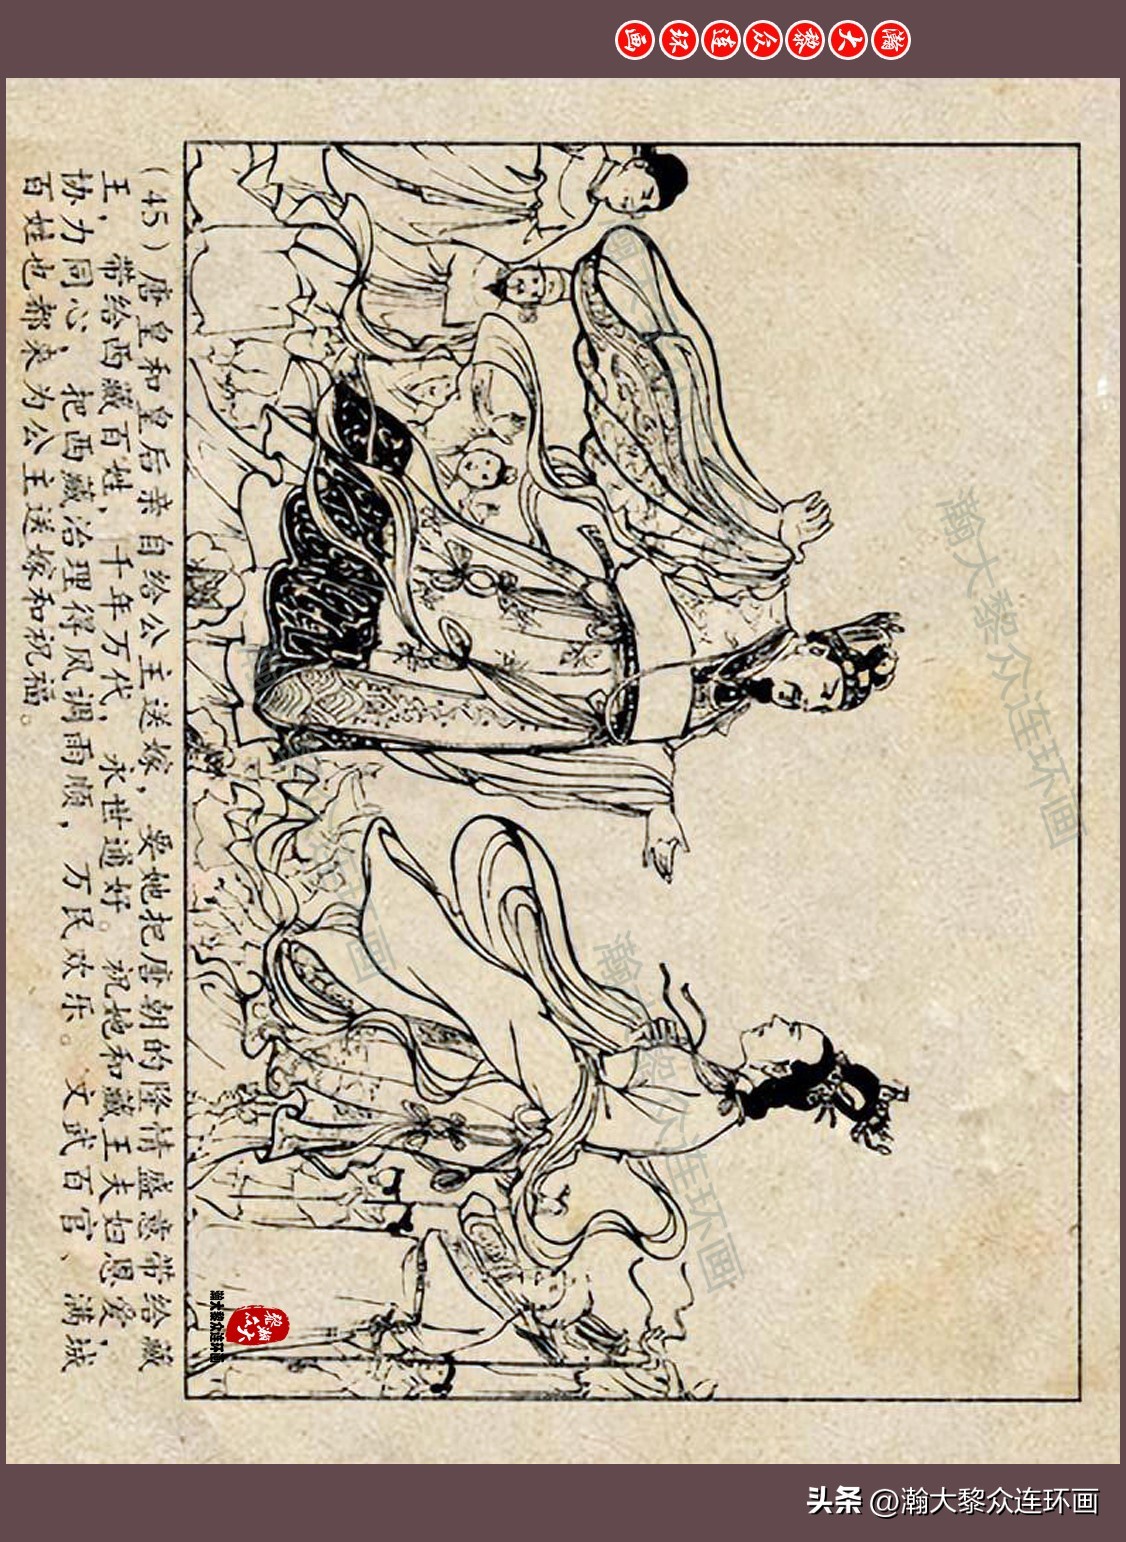 瀚大黎众连环画
(45)唐皇和皇后亲自给公主送嫁，要她把唐朝的隆情盛意带给藏
王，带给西藏百姓，千年万代，永世通好。祝她和藏王夫妇恩爱，
协力同心，把西藏治理得风调雨顺，万民欢乐。文武百官、满城
百姓也都来为公主送嫁和祝福。
瀚大黎众连环画
瀚大黎众连环画
瀚大黎众连环画
头条 @瀚大黎众连环画